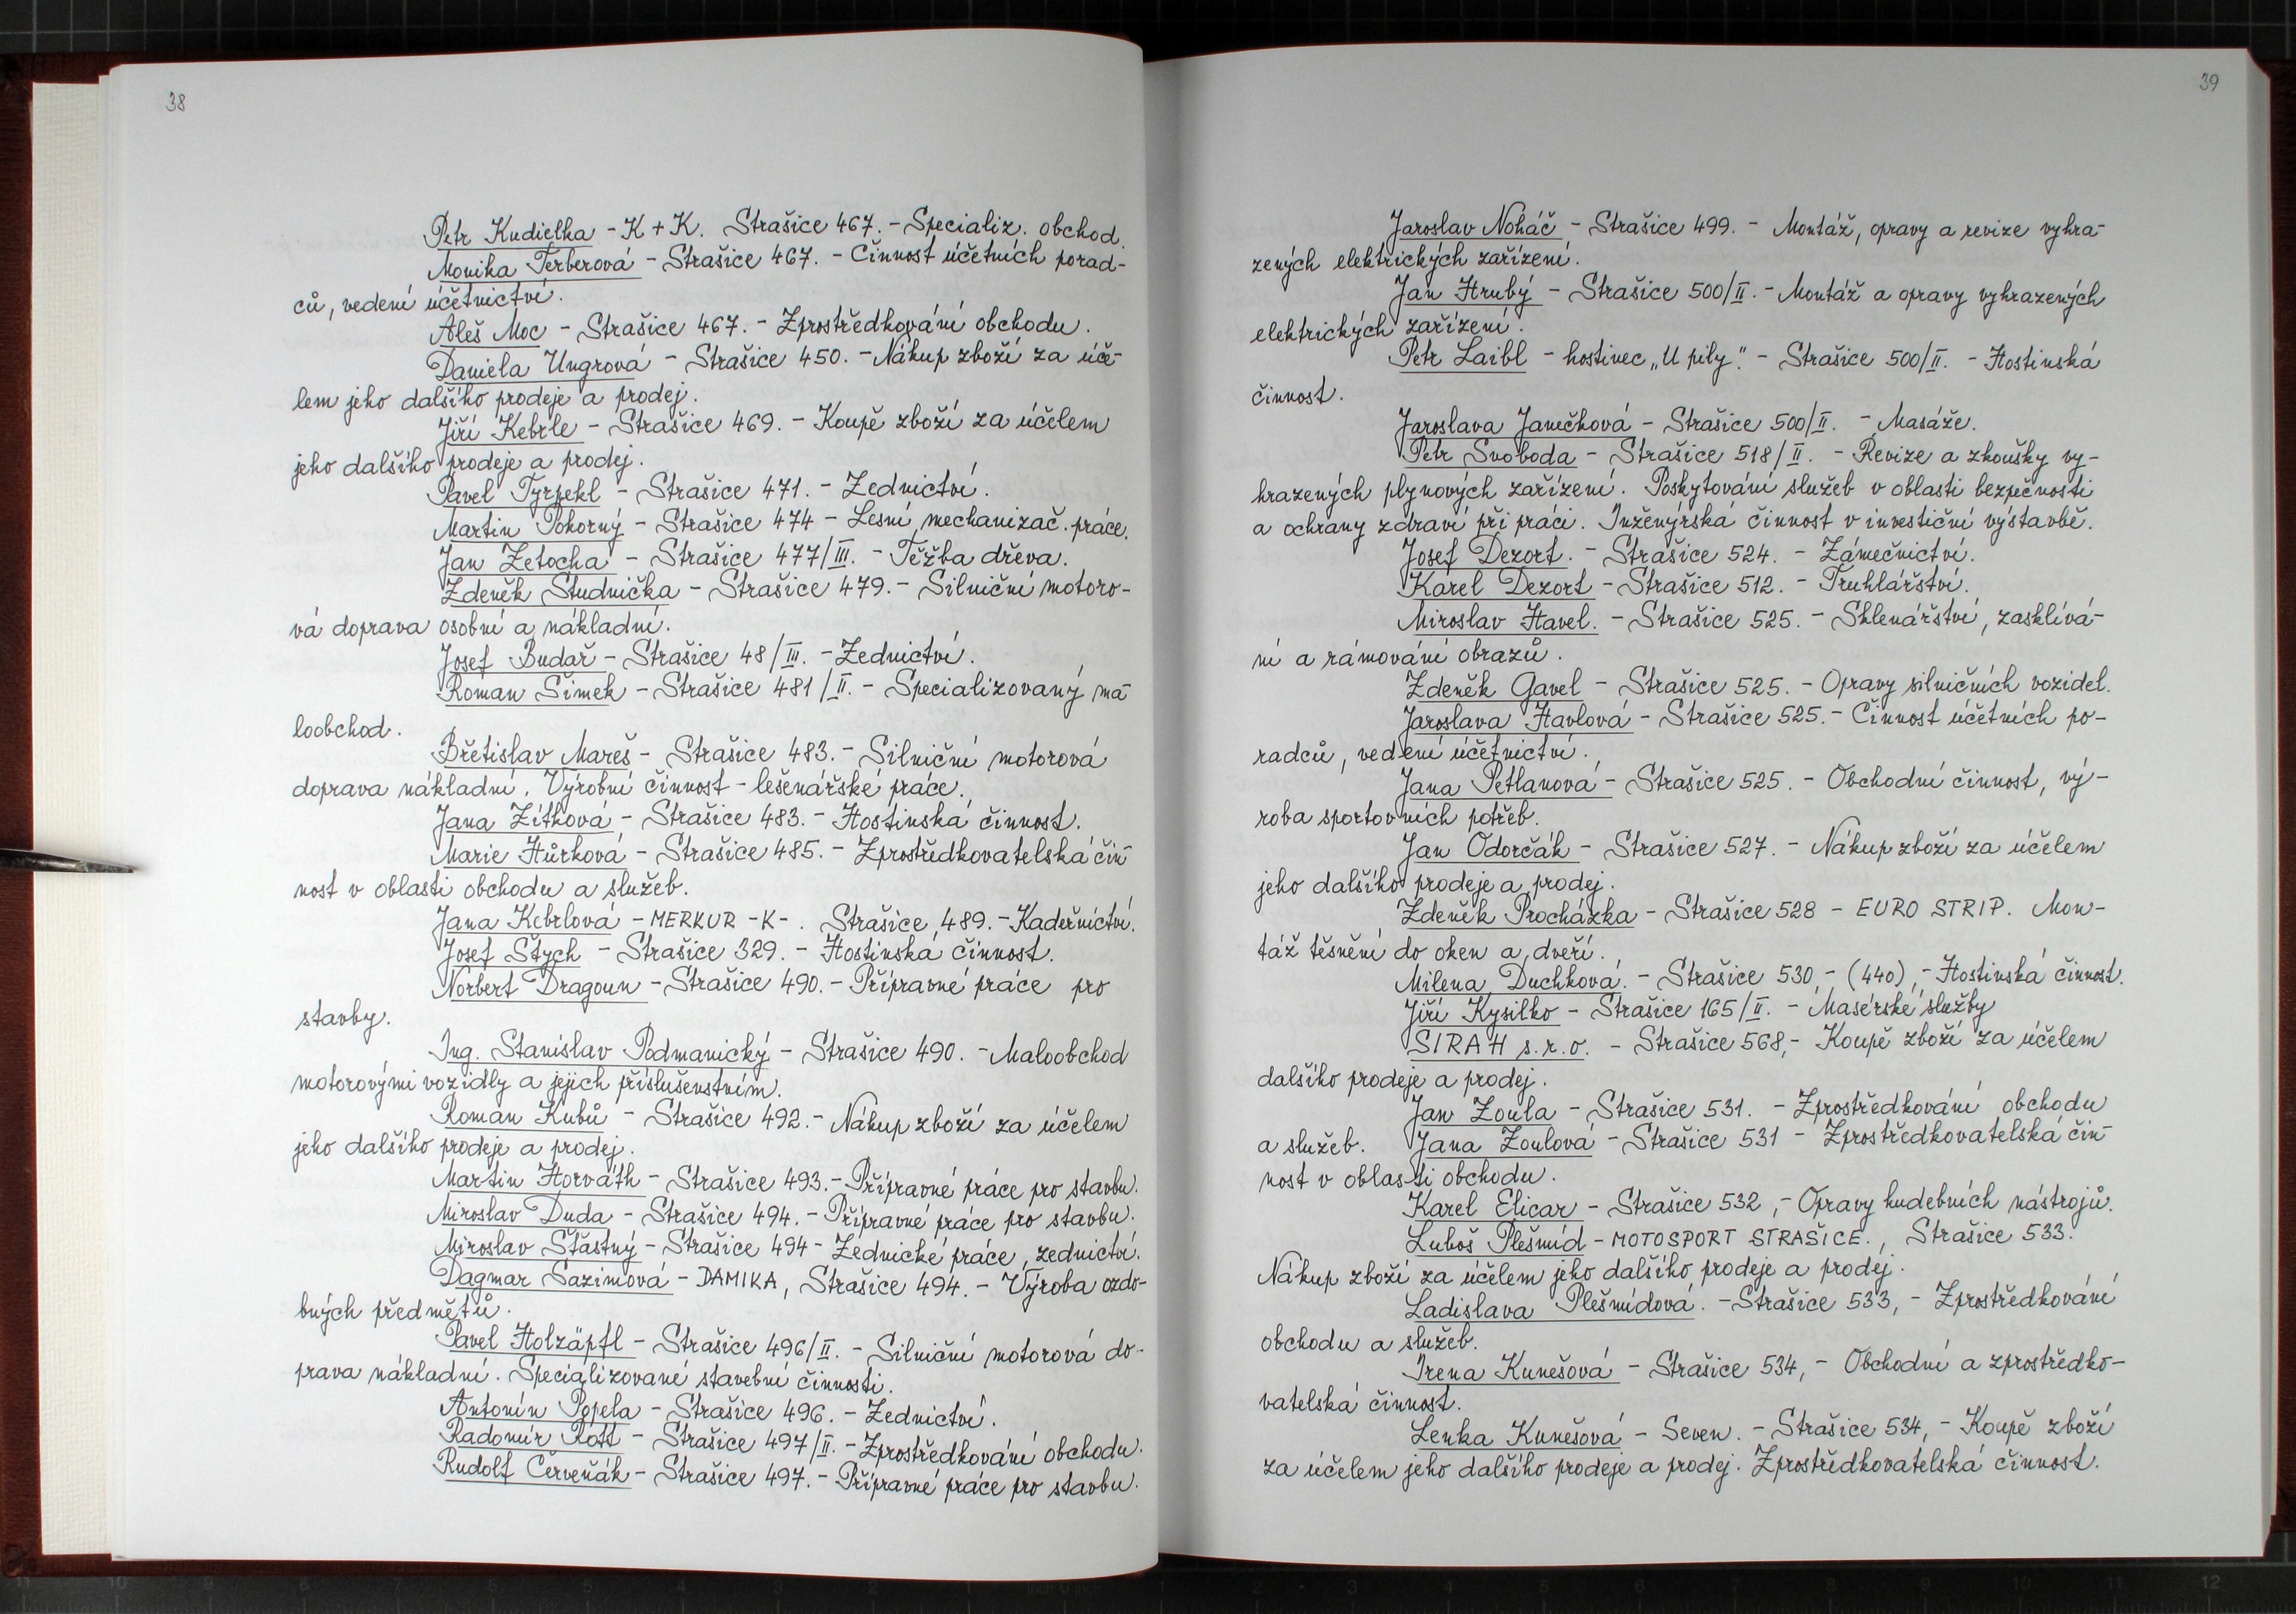 38
Petr Kudielka - K + K. Strašice 467. - Specializ. obchod.
Monika Ferberová - Strašice 467. - Činnost účetních porad-
ců, vedení účetnictví.
Aleš Moc - Strašice 467. - Zprostředkování obchodu.
Daniela Ungrová - Strašice 450. - Nákup zboží za úče-
lem jeho dalšího prodeje a prodej.
Jiří Kebrle - Strašice 469. - Koupě zboží za účelem
jeho dalšího prodeje a prodej.
Pavel Tyrpekl - Strašice 471. - Zednictví.
Martin Pokorný - Strašice 474 - Lesní mechanizač. práce.
Jan Zetocha - Strašice 477/III. - Těžba dřeva.
Zdeněk Studnička - Strašice 479. - Silniční motoro-
vá doprava osobní a nákladní.
Josef Budař - Strašice 48/III. - Zednictví.
Roman Šimek - Strašice 481/II. - Specializovaný ma-
loobchod.
Břetislav Mareš - Strašice 483. - Silniční motorová
doprava nákladní. Výrobní činnost - lešenářské práce.
Jana Zítková - Strašice 483. - Hostinská činnost.
Marie Hůrková - Strašice 485. - Zprostředkovatelská čin-
nost v oblasti obchodu a služeb.
Jana Kebrlová - MERKUR -K- . Strašice, 489. - Kadeřnictví.
Josef Štych - Strašice 329. - Hostinská činnost.
Norbert Dragoun - Strašice 490. - Přípravné práce pro
stavby.
Ing. Stanislav Podmanický - Strašice 490. - Maloobchod
motorovými vozidly a jejich příslušenstvím.
Roman Kubů - Strašice 492. - Nákup zboží za účelem
jeho dalšího prodeje a prodej.
Martin Horváth - Strašice 493. - Přípravné práce pro stavbu.
Miroslav Duda - Strašice 494. - Přípravné práce pro stavbu.
Miroslav Šťastný - Strašice 494 - Zednické práce, zednictví.
Dagmar Sazimová - DAMIKA, Strašice 494. - Výroba ozdo-
bných předmětů.
Pavel Holzäpfl - Strašice 496/II. - Silniční motorová do-
prava nákladní. Specializované stavební činnosti.
Antonín Popela - Strašice 496. - Zednictví.
Radomír Rott - Strašice 497/II. - Zprostředkování obchodu.
Rudolf Červeňák - Strašice 497. - Přípravné práce pro stavbu.
39
Jaroslav Noháč - Strašice 499. - Montáž, opravy a revize vyhra-
zených elektrických zařízení.
Jan Hrubý - Strašice 500/II. - Montáž a opravy vyhrazených
elektrických zařízení.
Petr Laibl - hostinec „U pily". - Strašice 500/II. - Hostinská
činnost.
Jaroslava Janečková - Strašice 500/II. - Masáže.
Petr Svoboda - Strašice 518/II. - Revize a zkoušky vy-
hrazených plynových zařízení. Poskytování služeb v oblasti bezpečnosti
a ochrany zdraví při práci. Inženýrská činnost v investiční výstavbě.
Josef Dezort. - Strašice 524. - Zámečnictví.
Karel Dezort - Strašice 512. - Truhlářství.
Miroslav Havel. - Strašice 525. - Sklenářství, zasklívá-
ní a rámování obrazů.
Zdeněk Gavel - Strašice 525. - Opravy silničních vozidel.
Jaroslava Havlová - Strašice 525. - Činnost účetních po-
radců, vedení účetnictví.
Jana Petlanová - Strašice 525. - Obchodní činnost, vý-
roba sportovních potřeb.
Jan Odorčák - Strašice 527. - Nákup zboží za účelem
jeho dalšího prodeje a prodej.
Zdeněk Procházka - Strašice 528 - EURO STRIP. Mon-
táž těsnění do oken a dveří.
Milena Duchková. - Strašice 530, - (440), - Hostinská činnost.
Jiří Kysilko - Strašice 165/II. - Masérské služby
SIRAH s.r.o. - Strašice 568, - Koupě zboží za účelem
dalšího prodeje a prodej.
Jan Zoula - Strašice 531. - Zprostředkování obchodu
a služeb. Jana Zoulová - Strašice 531 - Zprostředkovatelská čin-
nost v oblasti obchodu.
Karel Elicar - Strašice 532, - Opravy hudebních nástrojů.
Luboš Plešmíd - MOTOSPORT STRAŠICE., Strašice 533.
Nákup zboží za účelem jeho dalšího prodeje a prodej.
Ladislava Plešmídová. - Strašice 533, - Zprostředkování
obchodu a služeb.
Irena Kunešová - Strašice 534, - Obchodní a zprostředko-
vatelská činnost.
Lenka Kunešová - Seven. - Strašice 534, - Koupě zboží
za účelem jeho dalšího prodeje a prodej. Zprostředkovatelská činnost.